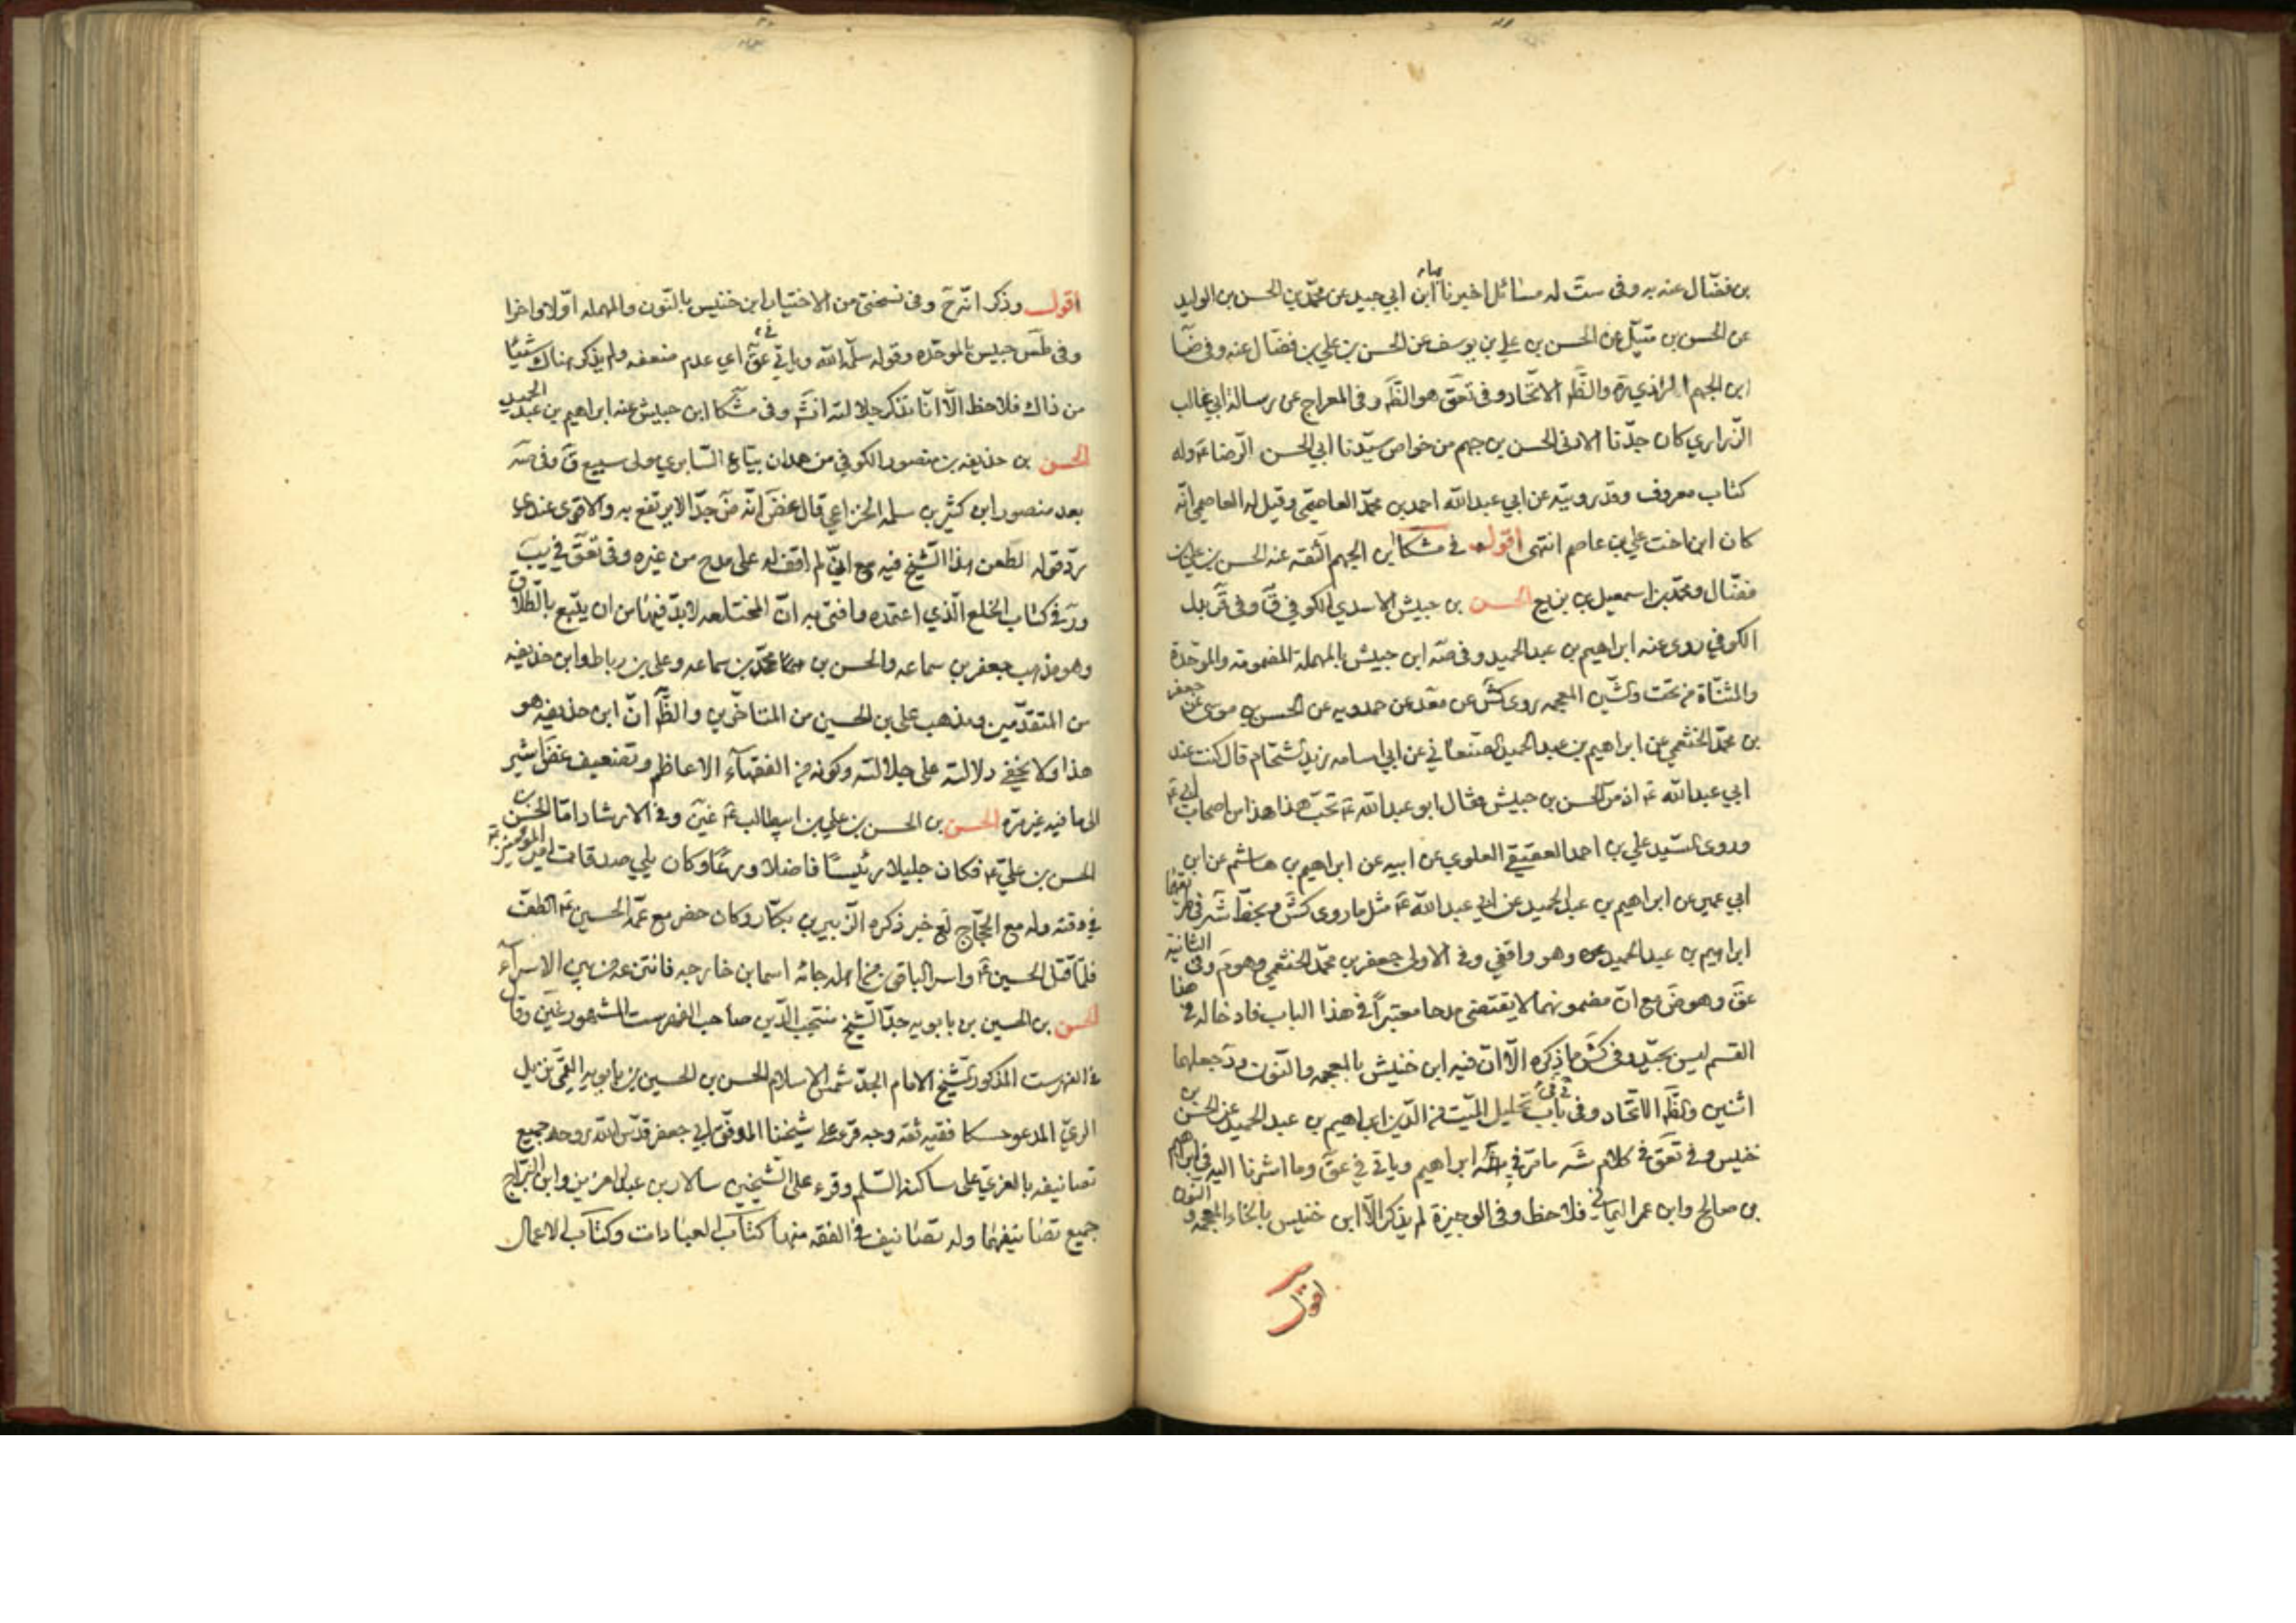 بن فضّال عنه به وفى ست له مسائل اخبرنا بها ابن ابي جيد عن محمّد بن الحسن بن الوليد
عن الحسن بن متيّل عن الحسن بن علي بن يوسف عن الحسن بن علي بن فضّال عنه وفى ضا
ابن الجهم الرازي والظّ الاتّحاد وفى تعق هو الظّ وفى المعراج عن رسالة ابي غالب
الزّراري كان جدّنا الادنى الحسن بن جهم من خواص سيّدنا ابي الحسن الرّضا ع وله
كتاب معروف وقد رويته عن ابي عبد الله احمد بن محمّد العاصمّي وقيل له العاصمي انّه
كان ابن اخت علي بن عاصم انتهى اقول في مشكا ابن الجهم الثقه عنه الحسن بن علي بن
فضّال ومحمّد بن اسمعيل بن بزيع الحسن بن حبيش الاسدي الكوفي ق وفى قر بدل
الكوفي روى عنه ابراهيم بن عبد الحميد وفى صه ابن حبيش بالمهملة المضمومة والموحّدة
والمثنّاة من تحت والشّين المعجمه روى كش عن محمّد عن حمدويه عن الحسن بن موسى عن جعفر
بن محمّد الخثعمي عن ابراهيم بن عبد الحميد الصّنعاني عن ابي اسامه زيد الشحّام قال كنت عند
ابي عبد الله ع اذ مرّ الحسن بن حبيش فقال ابو عبد الله ع تحبّ هذا هذا من اصحاب ابي ع
وروى السّيد علي بن احمد العقيقي العلوي عن ابيه عن ابراهيم بن هاشم عن ابن
ابي عمير عن ابراهيم بن عبد الحميد عن ابي عبد الله ع مثل ما روى كش وبخطّ شه فى طريقها
ابراهيم بن عبد الحميد وهو واقفي وفى الاولى جعفر بن محمّد الخثعمي وهو م وفى الثانية
عق وهو ض مع انّ مضمونهما لا يقتضى مدحا معتبراً فى هذا الباب فادخاله في هذا
القسم ليس بجيّد وفى كش ما ذكره الّا انّ فيه ابن خنيش بالمعجمه والنّون ود جعلهما
اثنين والظّ الاتّحاد وفى في باب تحليل الميّت من الدّين ابراهيم بن عبد الحميد عن الحسن بن
خنيس وفى تعق في كلام شه ما مرّ في ابراهيم وياتي في عق وما اشرنا اليه في ابراهيم
بن صالح وابن عمر اليماني فلاحظ وفى الوجيزة لم يذكر الّا ابن خنيس بالخاء المعجمه والنون
اقول
اقول وذكر انّ ح وفى نسختى من الاختيار ابن خنيس بالنّون والمهمله اوّلا واخرا
وفى طس حبيس بالموحّده وقوله سلّمه الله وياتي في عق اي عدم ضعفه ولم يذكر هناك شيئا
من ذاك فلاحظ الّا انّا نذكر جلالته انش وفى مشكا ابن حبيش عنه ابراهيم بن عبد الحميد
الحسن بن حذيفه بن منصور الكوفي من همدان بيّاع السّابري مولى سبيع ق وفى صه
بعد منصور ابن كثير بن سلمه الخزاعي قال غض انّه ض جدّا لا يرتفع به والاقوى عندي
ردّ قوله لطعن هذا الشّيخ فيه مع انيّ لم اقف له على مدح من غيره وفى تعق في يب
ور في كتاب الخلع الّذي اعتمده وافتي به انّ المختلعه لا بدّ فيها من ان يتبع بالطّلاق
وهو مذهب جعفر بن سماعه والحسن بن محمّد بن سماعه وعلى بن رباط وابن حذيفه
من المتقدّمين ومذهب على بن الحسين من المتاخّرين والظّ انّ ابن حذيفه هو
هذا ولا يخفى دلالته على جلالته وكونه من الفقهآء الاعاظم وتضعيف غض اشير
الى ما فيه غير مرّه الحسن بن الحسن بن علي بن ابيطالب ع غين وفى الارشاد امّا الحسن بن
الحسن بن عليّ ع فكان جليلا رئيسًا فاضلا ورعًا وكان يلي صدقات امير المؤمنين ع
في وقته وله مع الحجّاج لع خبر ذكره الزّبير بن بكّار وكان حضر مع عمّه الحسين ع الطّف
فلمّا قتل الحسين ع واسر الباقي من اهله جائه اسما بن خارجه فانتزعه من بين الاسرآء
الحسن بن الحسين بن بابويه جدّ الشّيخ منتجب الدّين صاحب الفهرست المشهور غين وقال
فى الفهرست المذكور الشّيخ الامام الجدّ شمس الاسلام الحسن بن الحسين بن بابويه القمّي نزيل
الرّيّ المدعو حسكا فقيه ثقه وجه قرء على شيخنا الموفّق ابي جعفر قدّس الله روحه جميع
تصانيفه بالغريّ على ساكنه السّلم وقرء على الشّيخين سالار بن عبد العزيز وابن البرّاج
جميع تصانيفهما وله تصانيف فى الفقه منها كتاب العبادات وكتاب الاعمال